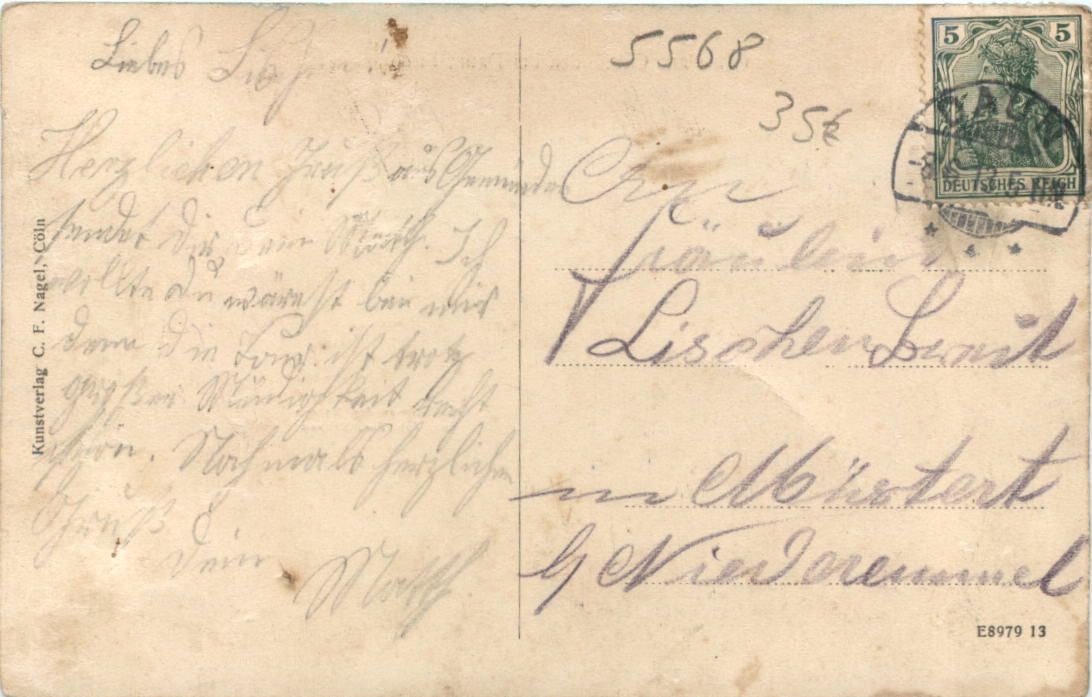 Liebes Lischen!
Herzlichen Gruß aus Gemünden
sendet dir dein Matth. Ich
wollte du wärest bei mir
denn die Tour ist trotz
großer Müdigkeit recht
schön. Nochmals herzlichen
Gruß
Dein
Matth.
Kunstverlag C. F. Nagel, Cöln
5568
35
5 5
DEUTSCHES REICH
An
Fräulein
Lischen
in Müstert
Niederemmel
E8979 13